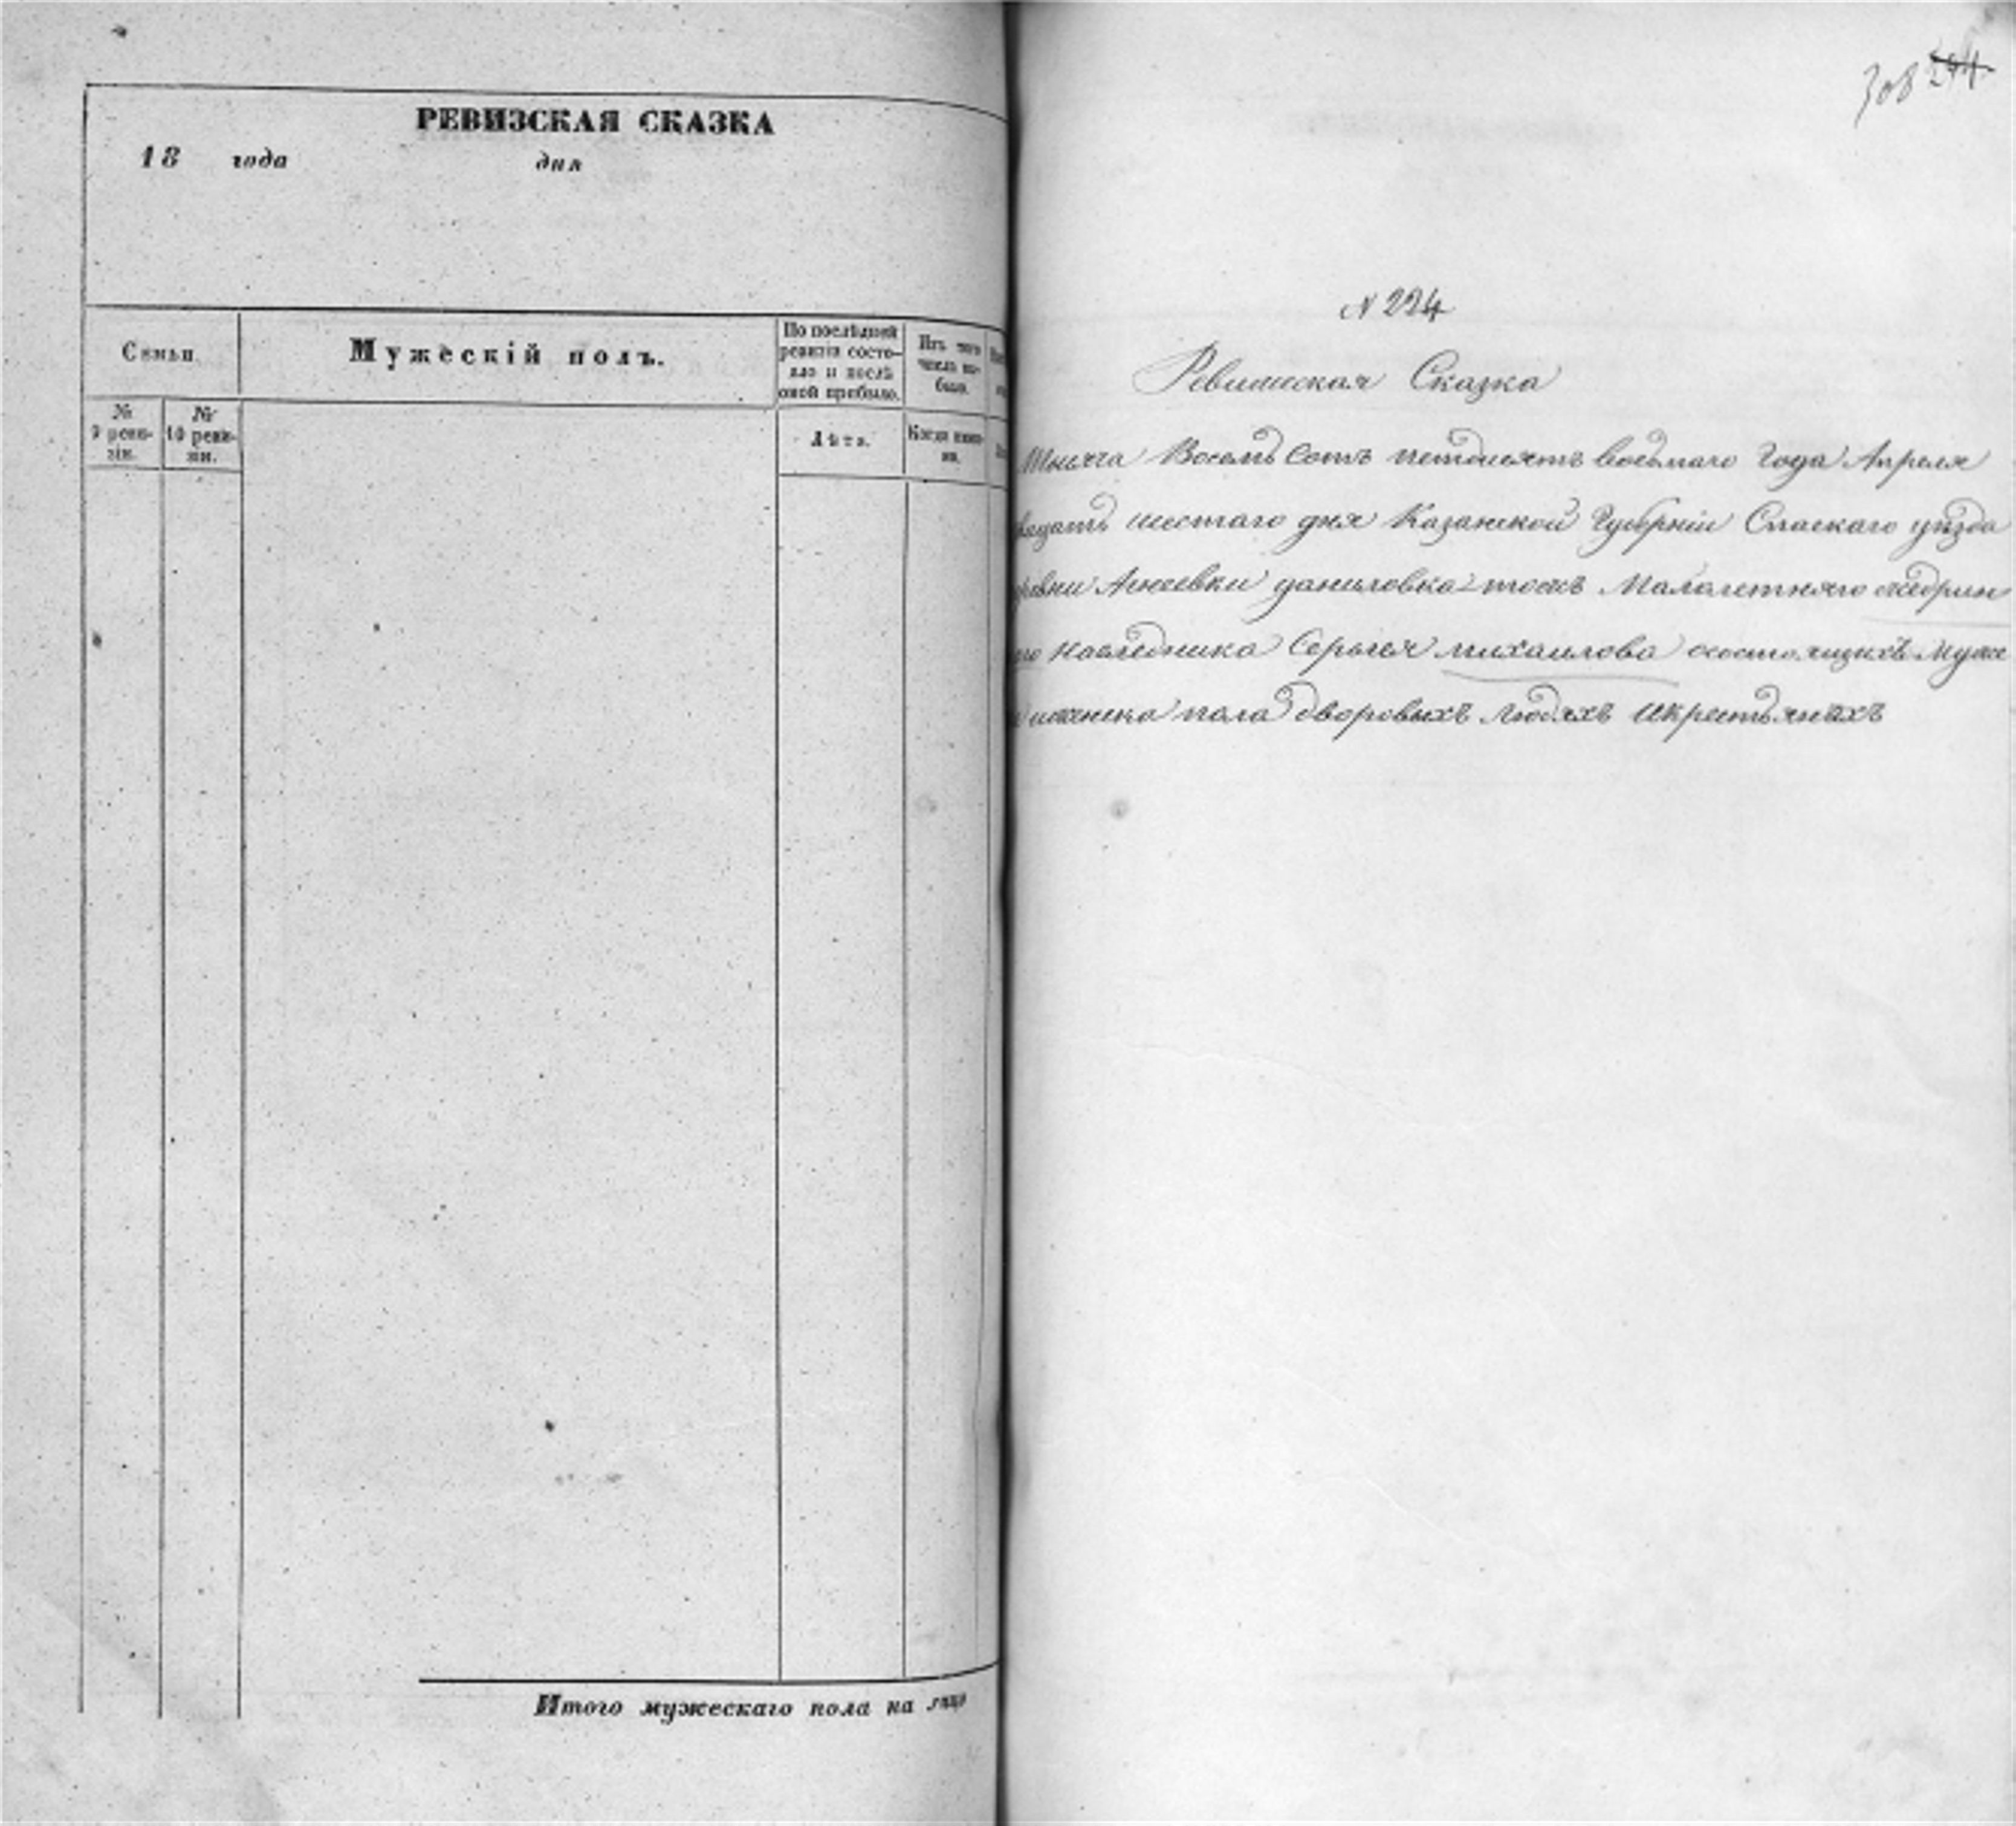 РЕВИЗСКАЯ СКАЗКА
18 года дня
Семьи.
Мужескій полъ.
По послѣдней
ревизіи состо-
яло и послѣ
оной прибыло.
Изъ того
числа вы-
было.
№
9 реви-
зіи.
№
10 реви-
зіи.
Лѣта.
Когда имен-
но.
Итого мужескаго пола на лицо
308 294
N 224
Ревиская Сказка
Тысяча Восемь Сотъ петдесятъ восьмаго Года Апреля
шестаго дня Казанской Губерніи Спаскаго уѣзда
даниловка тожъ Малолетняго
наследника Сергея михаилова состоящихъ муже
женска пола дворовыхъ людяхъ Икрестьянѣхъ